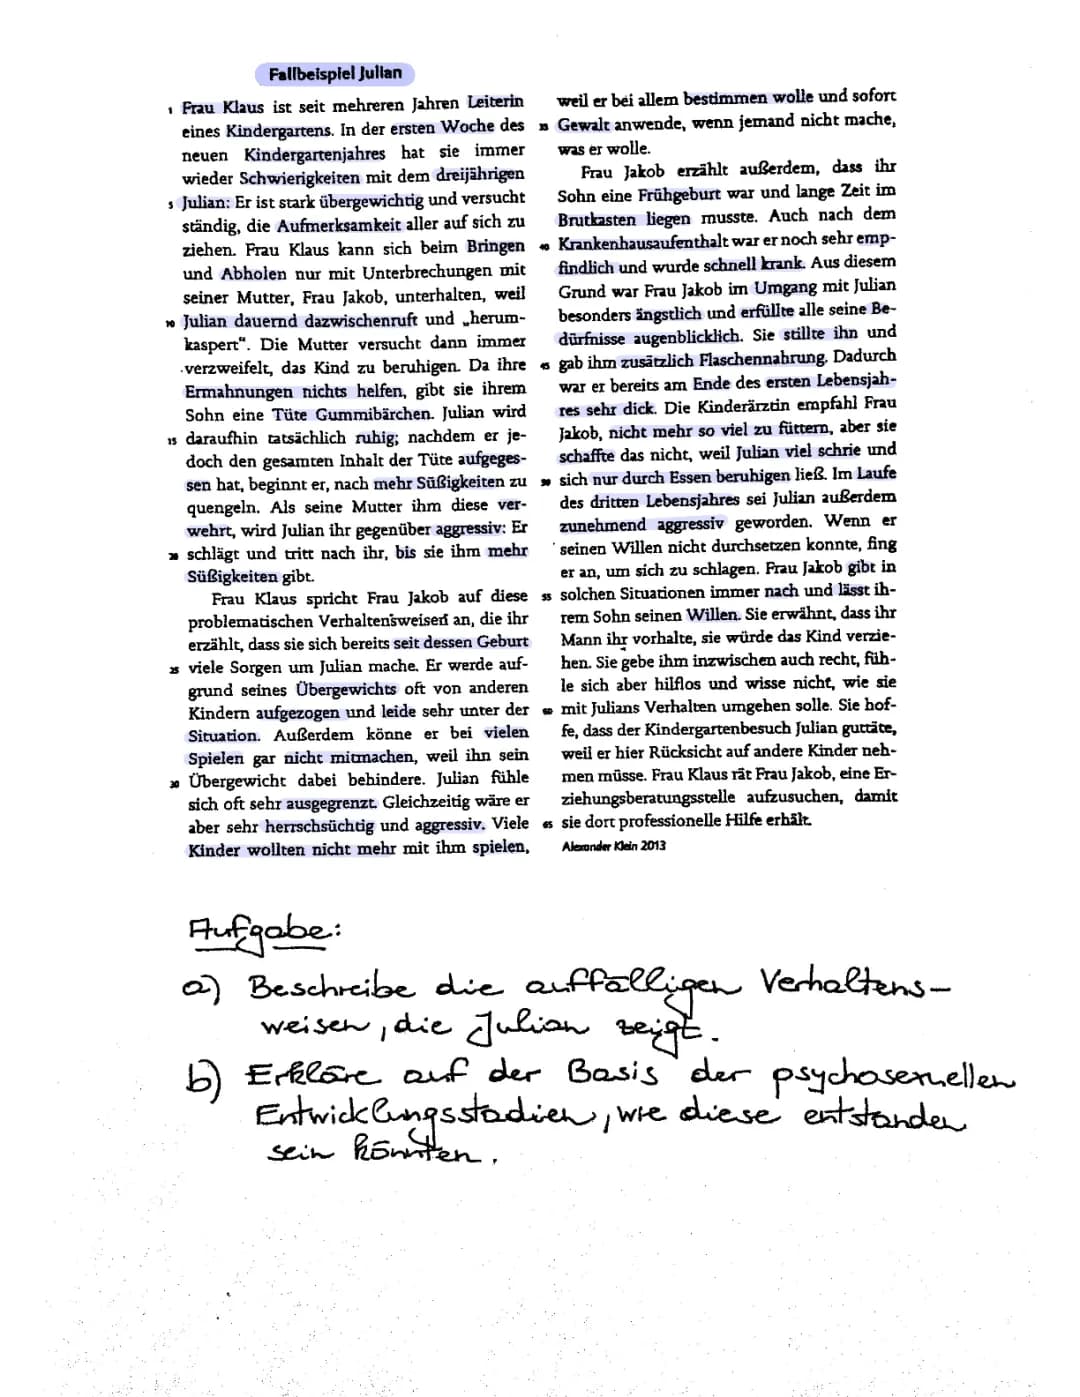 Fallbeispiel Julian
1 Frau Klaus ist seit mehreren Jahren Leiterin
eines Kindergartens. In der ersten Woche des
neuen Kindergartenjahres hat sie immer
wieder Schwierigkeiten mit dem dreijährigen
5 Julian: Er ist stark übergewichtig und versucht
ständig, die Aufmerksamkeit aller auf sich zu
ziehen. Frau Klaus kann sich beim Bringen
und Abholen nur mit Unterbrechungen mit
seiner Mutter, Frau Jakob, unterhalten, weil
10 Julian dauernd dazwischenruft und „herum-
kaspert“. Die Mutter versucht dann immer
verzweifelt, das Kind zu beruhigen. Da ihre
Ermahnungen nichts helfen, gibt sie ihrem
Sohn eine Tüte Gummibärchen. Julian wird
15 daraufhin tatsächlich ruhig; nachdem er je-
doch den gesamten Inhalt der Tüte aufgeges-
sen hat, beginnt er, nach mehr Süßigkeiten zu
quengeln. Als seine Mutter ihm diese ver-
wehrt, wird Julian ihr gegenüber aggressiv: Er
20 schlägt und tritt nach ihr, bis sie ihm mehr
Süßigkeiten gibt.
Frau Klaus spricht Frau Jakob auf diese
problematischen Verhaltensweisen an, die ihr
erzählt, dass sie sich bereits seit dessen Geburt
25 viele Sorgen um Julian mache. Er werde auf-
grund seines Übergewichts oft von anderen
Kindern aufgezogen und leide sehr unter der
Situation. Außerdem könne er bei vielen
Spielen gar nicht mitmachen, weil ihn sein
30 Übergewicht dabei behindere. Julian fühle
sich oft sehr ausgegrenzt. Gleichzeitig wäre er
aber sehr herrschsüchtig und aggressiv. Viele
Kinder wollten nicht mehr mit ihm spielen,
weil er bei allem bestimmen wolle und sofort
35 Gewalt anwende, wenn jemand nicht mache,
was er wolle.
Frau Jakob erzählt außerdem, dass ihr
Sohn eine Frühgeburt war und lange Zeit im
Brutkasten liegen musste. Auch nach dem
40 Krankenhausaufenthalt war er noch sehr emp-
findlich und wurde schnell krank. Aus diesem
Grund war Frau Jakob im Umgang mit Julian
besonders ängstlich und erfüllte alle seine Be-
dürfnisse augenblicklich. Sie stillte ihn und
45 gab ihm zusätzlich Flaschennahrung. Dadurch
war er bereits am Ende des ersten Lebensjah-
res sehr dick. Die Kinderärztin empfahl Frau
Jakob, nicht mehr so viel zu füttern, aber sie
schaffte das nicht, weil Julian viel schrie und
50 sich nur durch Essen beruhigen ließ. Im Laufe
des dritten Lebensjahres sei Julian außerdem
zunehmend aggressiv geworden. Wenn er
seinen Willen nicht durchsetzen konnte, fing
er an, um sich zu schlagen. Frau Jakob gibt in
55 solchen Situationen immer nach und lässt ih-
rem Sohn seinen Willen. Sie erwähnt, dass ihr
Mann ihr vorhalte, sie würde das Kind verzie-
hen. Sie gebe ihm inzwischen auch recht, füh-
le sich aber hilflos und wisse nicht, wie sie
60 mit Julians Verhalten umgehen solle. Sie hof-
fe, dass der Kindergartenbesuch Julian guttäte,
weil er hier Rücksicht auf andere Kinder neh-
men müsse. Frau Klaus rät Frau Jakob, eine Er-
ziehungsberatungsstelle aufzusuchen, damit
65 sie dort professionelle Hilfe erhält.
Alexander Klein 2013
Aufgabe:
a) Beschreibe die auffälligen Verhaltens-
weisen, die Julian zeigt.
b) Erkläre auf der Basis der psychosexuellen
Entwicklungsstadien, wie diese entstanden
sein könnten.